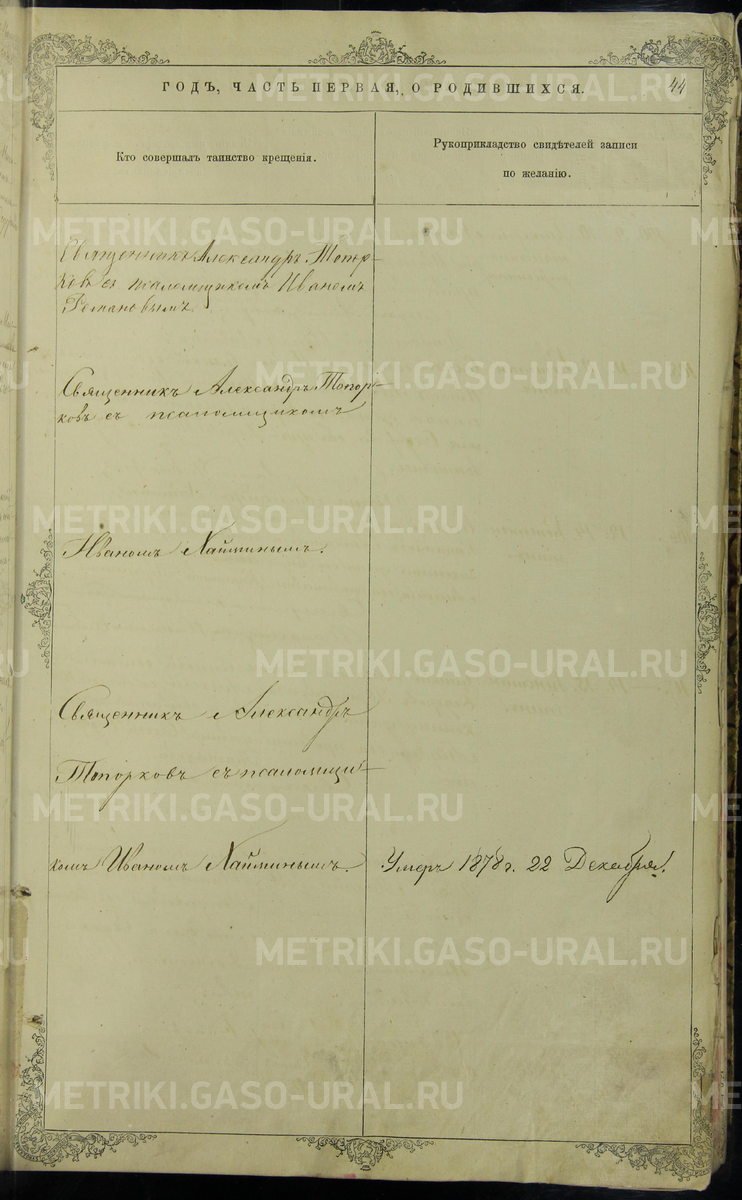 ГОДЪ, ЧАСТЬ ПЕРВАЯ, О РОДИВШИХСЯ.
44
Кто совершалъ таинство крещенія.
Рукоприкладство свидѣтелей записи
по желанію.
Священникъ Александръ Топор-
ковъ съ псаломщикомъ Иваномъ
Романовымъ
Священникъ Александръ Топор-
ковъ съ псаломщикомъ
Иваномъ Найминымъ.
Священникъ Александръ
Топорковъ съ псаломщи-
комъ Иваномъ Найминымъ.
Умеръ 1878 г. 22 Декабря.
METRIKI.GASO-URAL.RU